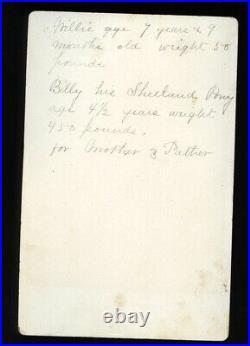 Willie age 7 years & 9
months old wright 50
pounds
Billy his Sheeland Pony
age 4½ years weight
450 pounds.
for Mother & Father
Watermarked withCR